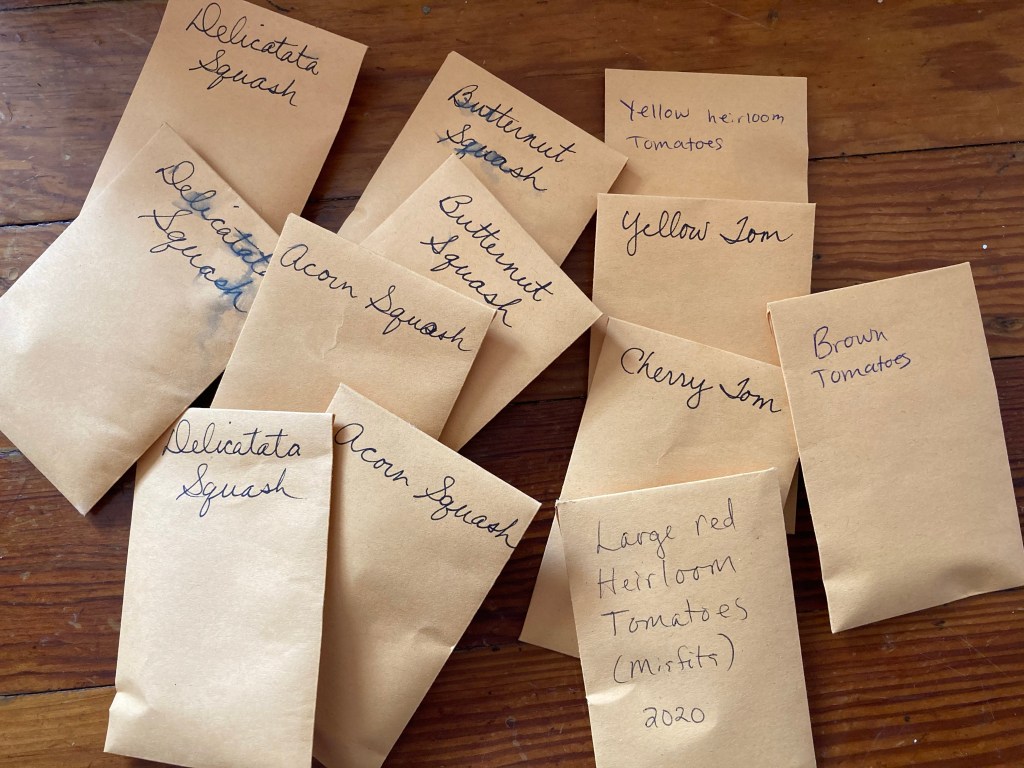 Delicatata
Squash
Butternut
Squash
Yellow heirloom
Tomatoes
Delicatata
Squash
Butternut
Squash
Yellow Tom
Acorn Squash
Cherry Tom
Brown
Tomatoes
Delicatata
Squash
Acorn Squash
Large red
Heirloom
Tomatoes
(misfits)
2020